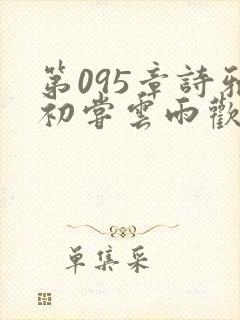 第095章詩雅
初嘗雲雨歡
单集采